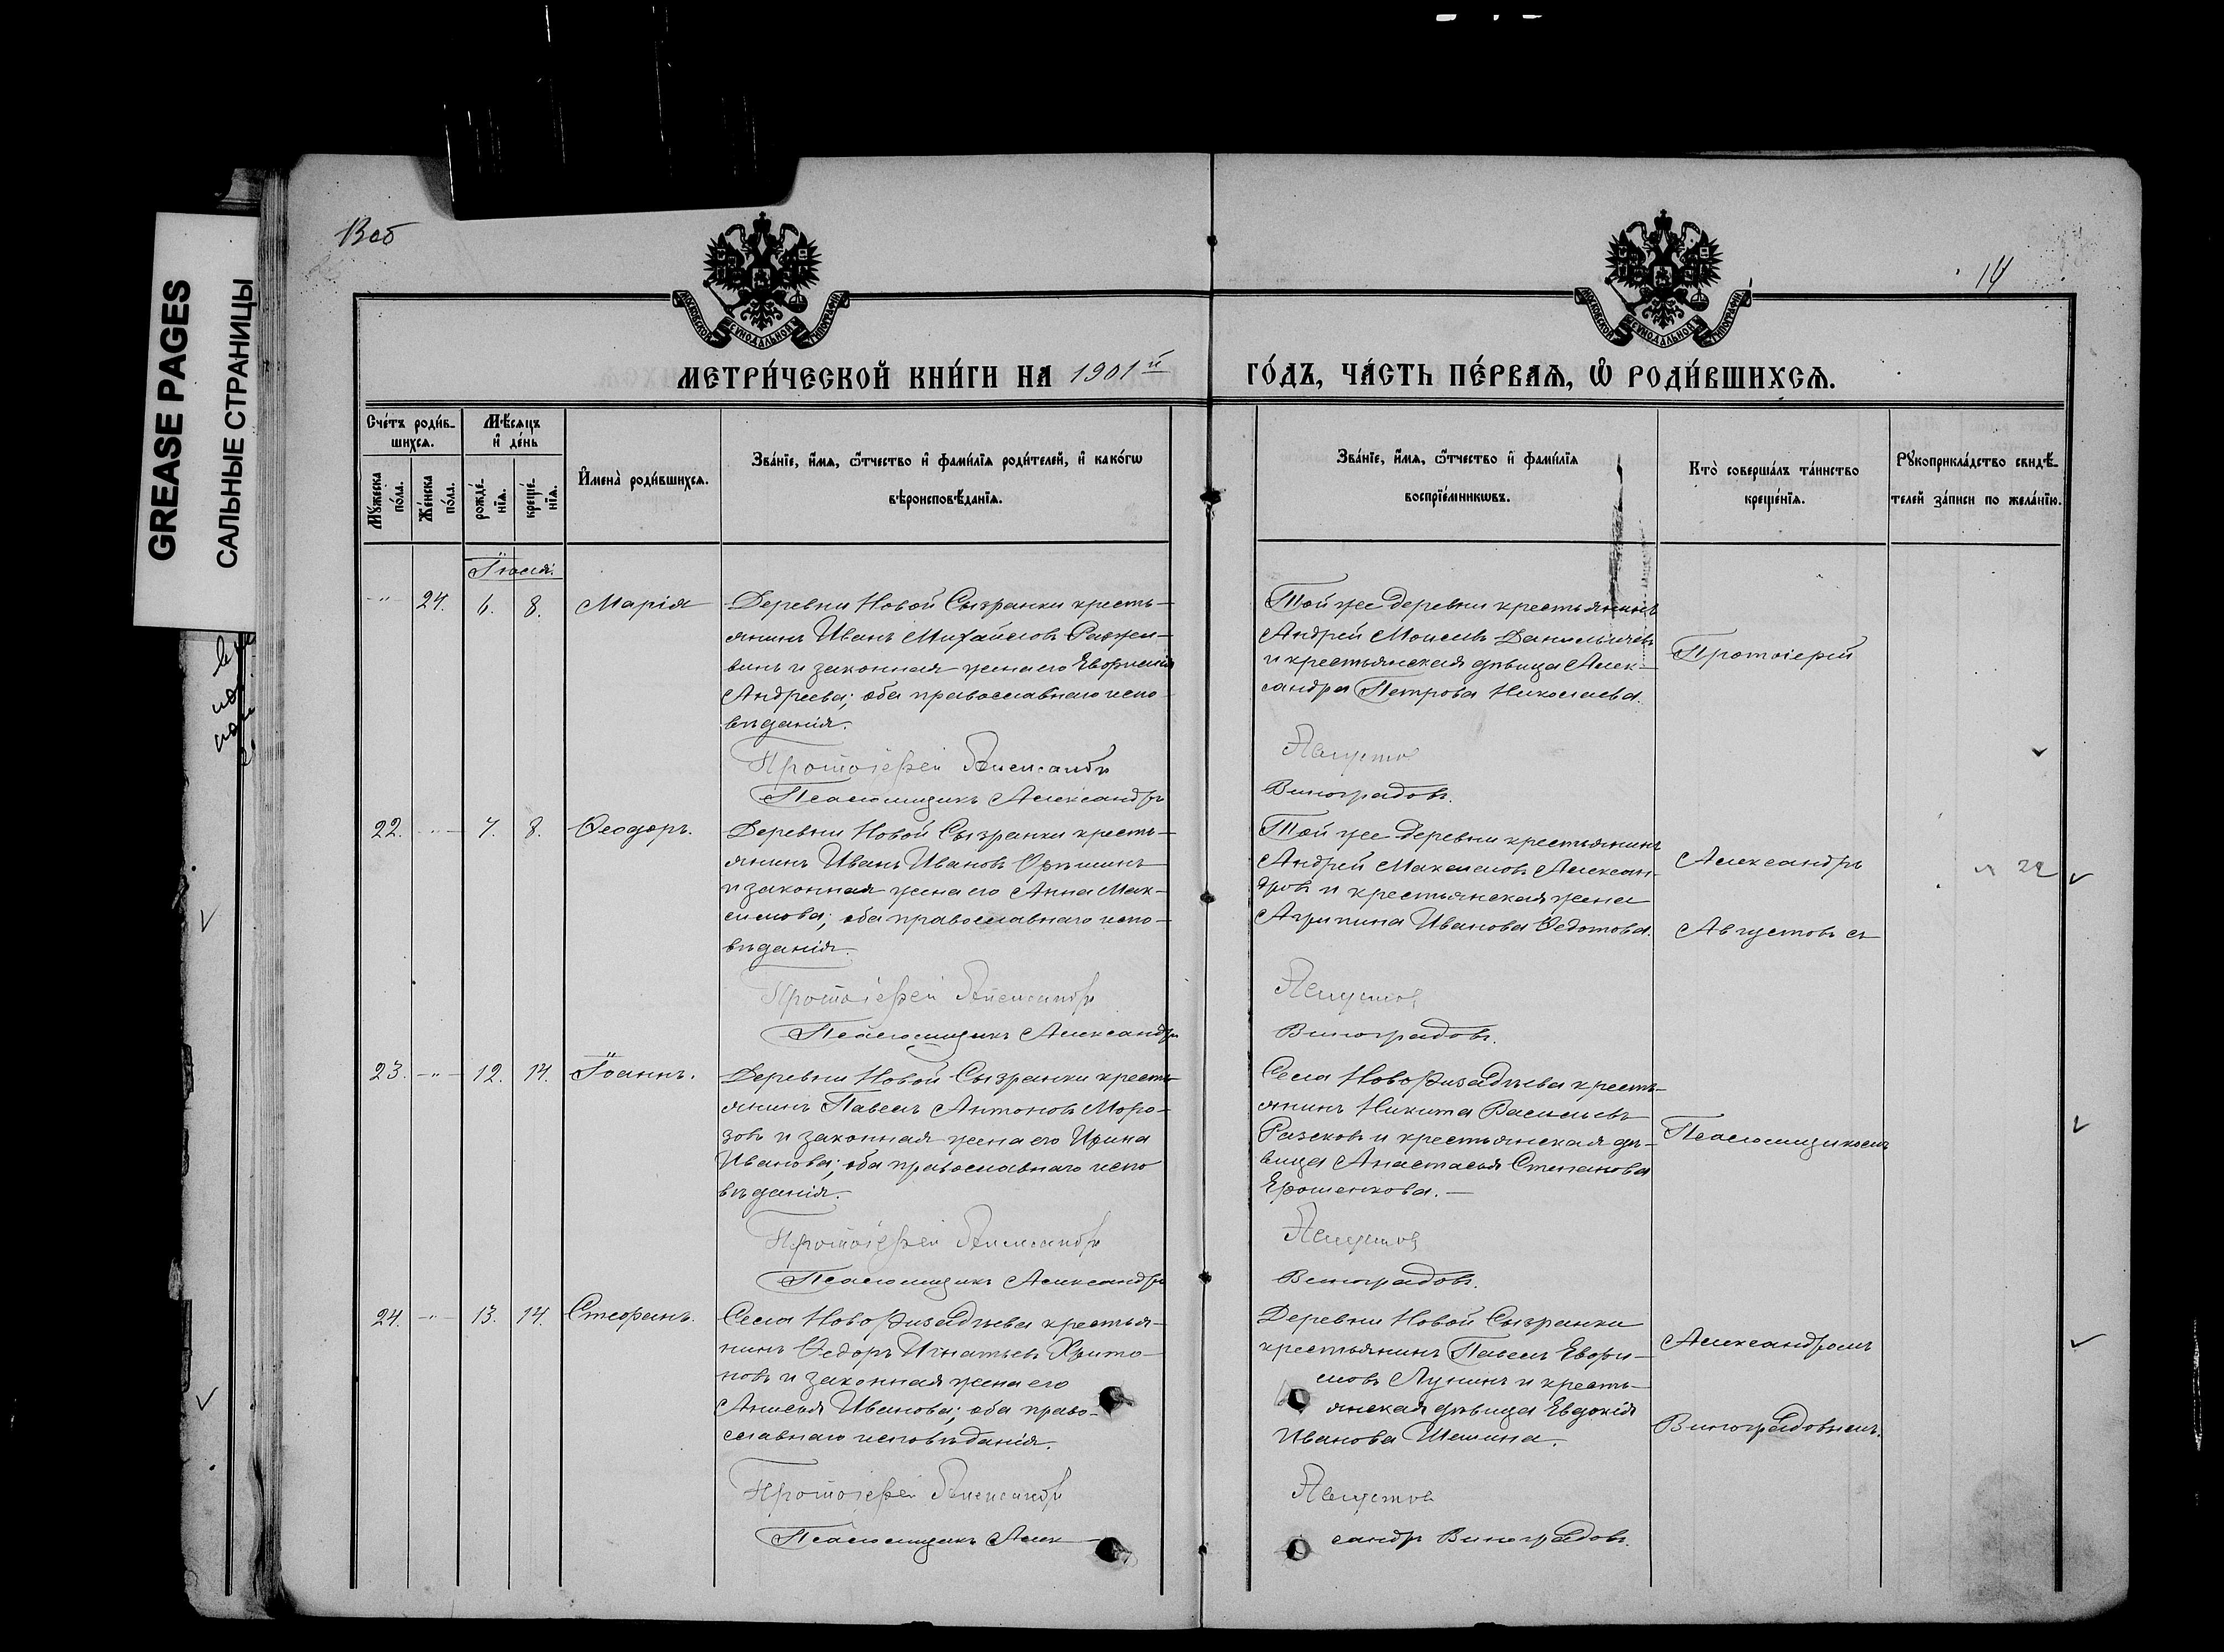 GREASE PAGES
САЛЬНЫЕ СТРАНИЦЫ
13об
14
МОСКОВСКОЙ СѴНОДАЛЬНОЙ ТИПОГРАФІИ
МОСКОВСКОЙ СѴНОДАЛЬНОЙ ТИПОГРАФІИ
МЕТРИ́ЧЕСКОЙ КНИ́ГИ НА 1901й ГО́ДЪ, ЧА́СТЬ ПЕ́РВАѦ, Ѡ РОДИ́ВШИХСѦ.
Сче́тъ роди́в-
шихсѧ.
Мꙋ́жеска по́ла.
Же́нска по́ла.
Мѣ́сѧцъ
и де́нь
рожде́-
нїѧ.
креще́-
нїѧ.
И҆мена̀ роди́вшихсѧ.
Зва́нїе, и҆́мѧ, ѻ҆́тчество и҆ фами́лїѧ роди́телей, и҆ како́гѡ
вѣроисповѣ́данїѧ.
Зва́нїе, и҆́мѧ, ѻ҆́тчество и҆ фами́лїѧ
воспрїе́мникѡвъ.
Кто̀ соверша́лъ та́инство
креще́нїѧ.
Рꙋкоприкла́дство свидѣ́-
телей за́писи по жела́нїю.
Іюля.
-"- 24. 6. 8. Марія
Деревни Новой Сызранки кресть-
янинъ Иванъ Михайловъ
винъ и законная жена его Евфимія
Андреева; оба православнаго испо-
вѣданія.
Протоіерей Александръ
Псаломщикъ Александръ
Той же деревни крестьянинъ
Андрей Моисеевъ Данилычевъ
и крестьянская дѣвица Алек-
сандра Петрова Николаева.
Августов
Виноградовъ.
Протоіерей
22. -"- 7. 8. Ѳеодоръ.
Деревни Новой Сызранки кресть-
янинъ Иванъ Ивановъ
и законная жена его Анна Мак-
симова; оба православнаго испо-
вѣданія.
Протоіерей Александръ
Псаломщикъ Александръ
Той же деревни крестьянинъ
Андрей Максимовъ Алексан-
дровъ и крестьянская жена
Агрипина Иванова Ѳедотова.
Августов
Виноградовъ.
Александръ
Августовъ съ
22
23. -"- 12. 14. Іоаннъ.
Деревни Новой Сызранки кресть-
янинъ Павелъ Антоновъ Моро-
зовъ и законная жена его Ирина
Иванова; оба православнаго испо
вѣданія.
Протоіерей Александръ
Псаломщикъ Александръ
Села Новоризадѣева кресть-
янинъ Никита Васильевъ
Разсковъ и крестьянская дѣ-
вица Анастасья Степанова
Ерошенкова.
Августов
Виноградовъ.
Псаломщикомъ
24. -"- 13. 14. Стефанъ.
Села Новоризадѣева крестья-
нинъ Ѳедоръ Игнатьевъ Харито-
новъ и законная жена его
Анисья Иванова; оба право-
славнаго исповѣданія.
Протоіерей Александръ
Псаломщикъ Алек
Деревни Новой Сызранки
крестьянинъ Павелъ Евфи-
мовъ Лунинъ и кресть-
янская дѣвица Евдокія
Иванова Шешина.
Августов
сандръ Виноградовъ.
Александромъ
Виноградовымъ.